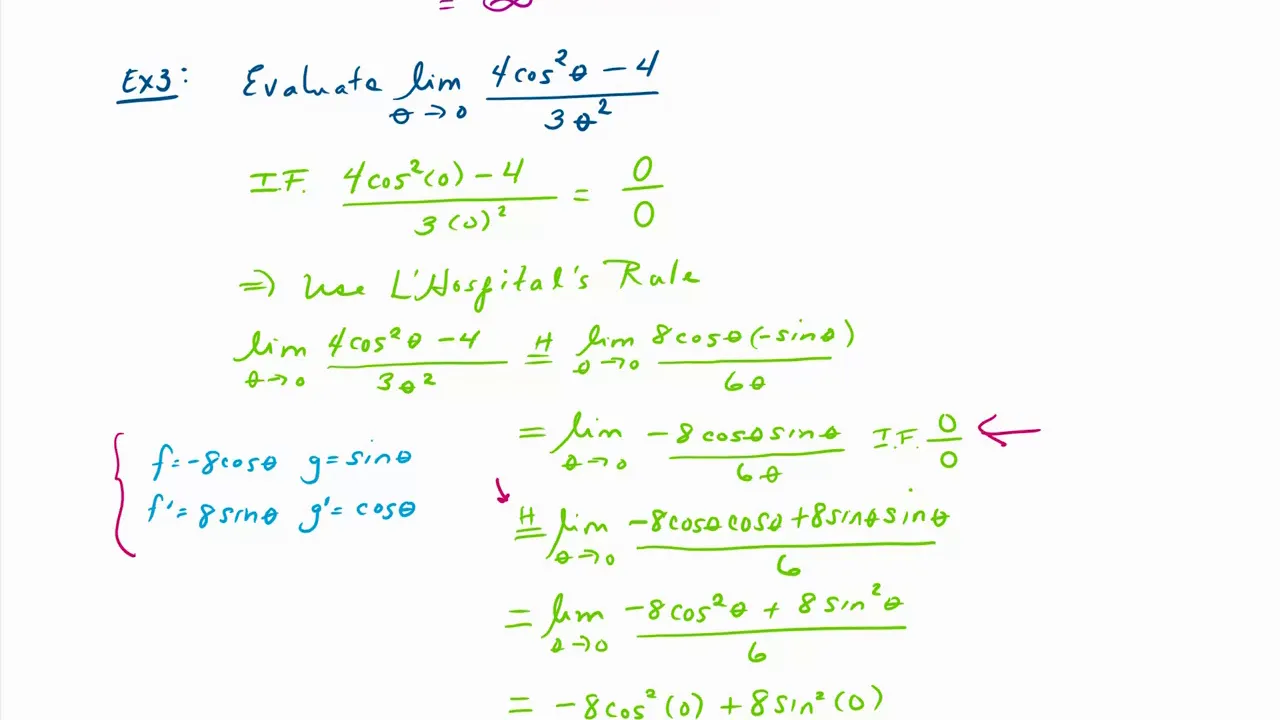 = ∞
Ex3: Evaluate lim θ→0 (4cos²θ − 4)/(3θ²)
I.F. (4cos²(0) − 4)/(3(0)²) = 0/0
⇒ Use L'Hospital's Rule
lim θ→0 (4cos²θ − 4)/(3θ²) =ᴴ lim θ→0 (8cosθ(−sinθ))/(6θ)
= lim θ→0 (−8cosθsinθ)/(6θ) I.F. 0/0 ←
{ f = −8cosθ g = sinθ
f' = 8sinθ g' = cosθ
=ᴴ lim θ→0 (−8cosθcosθ + 8sinθsinθ)/6
= lim θ→0 (−8cos²θ + 8sin²θ)/6
= −8cos²(0) + 8sin²(0)